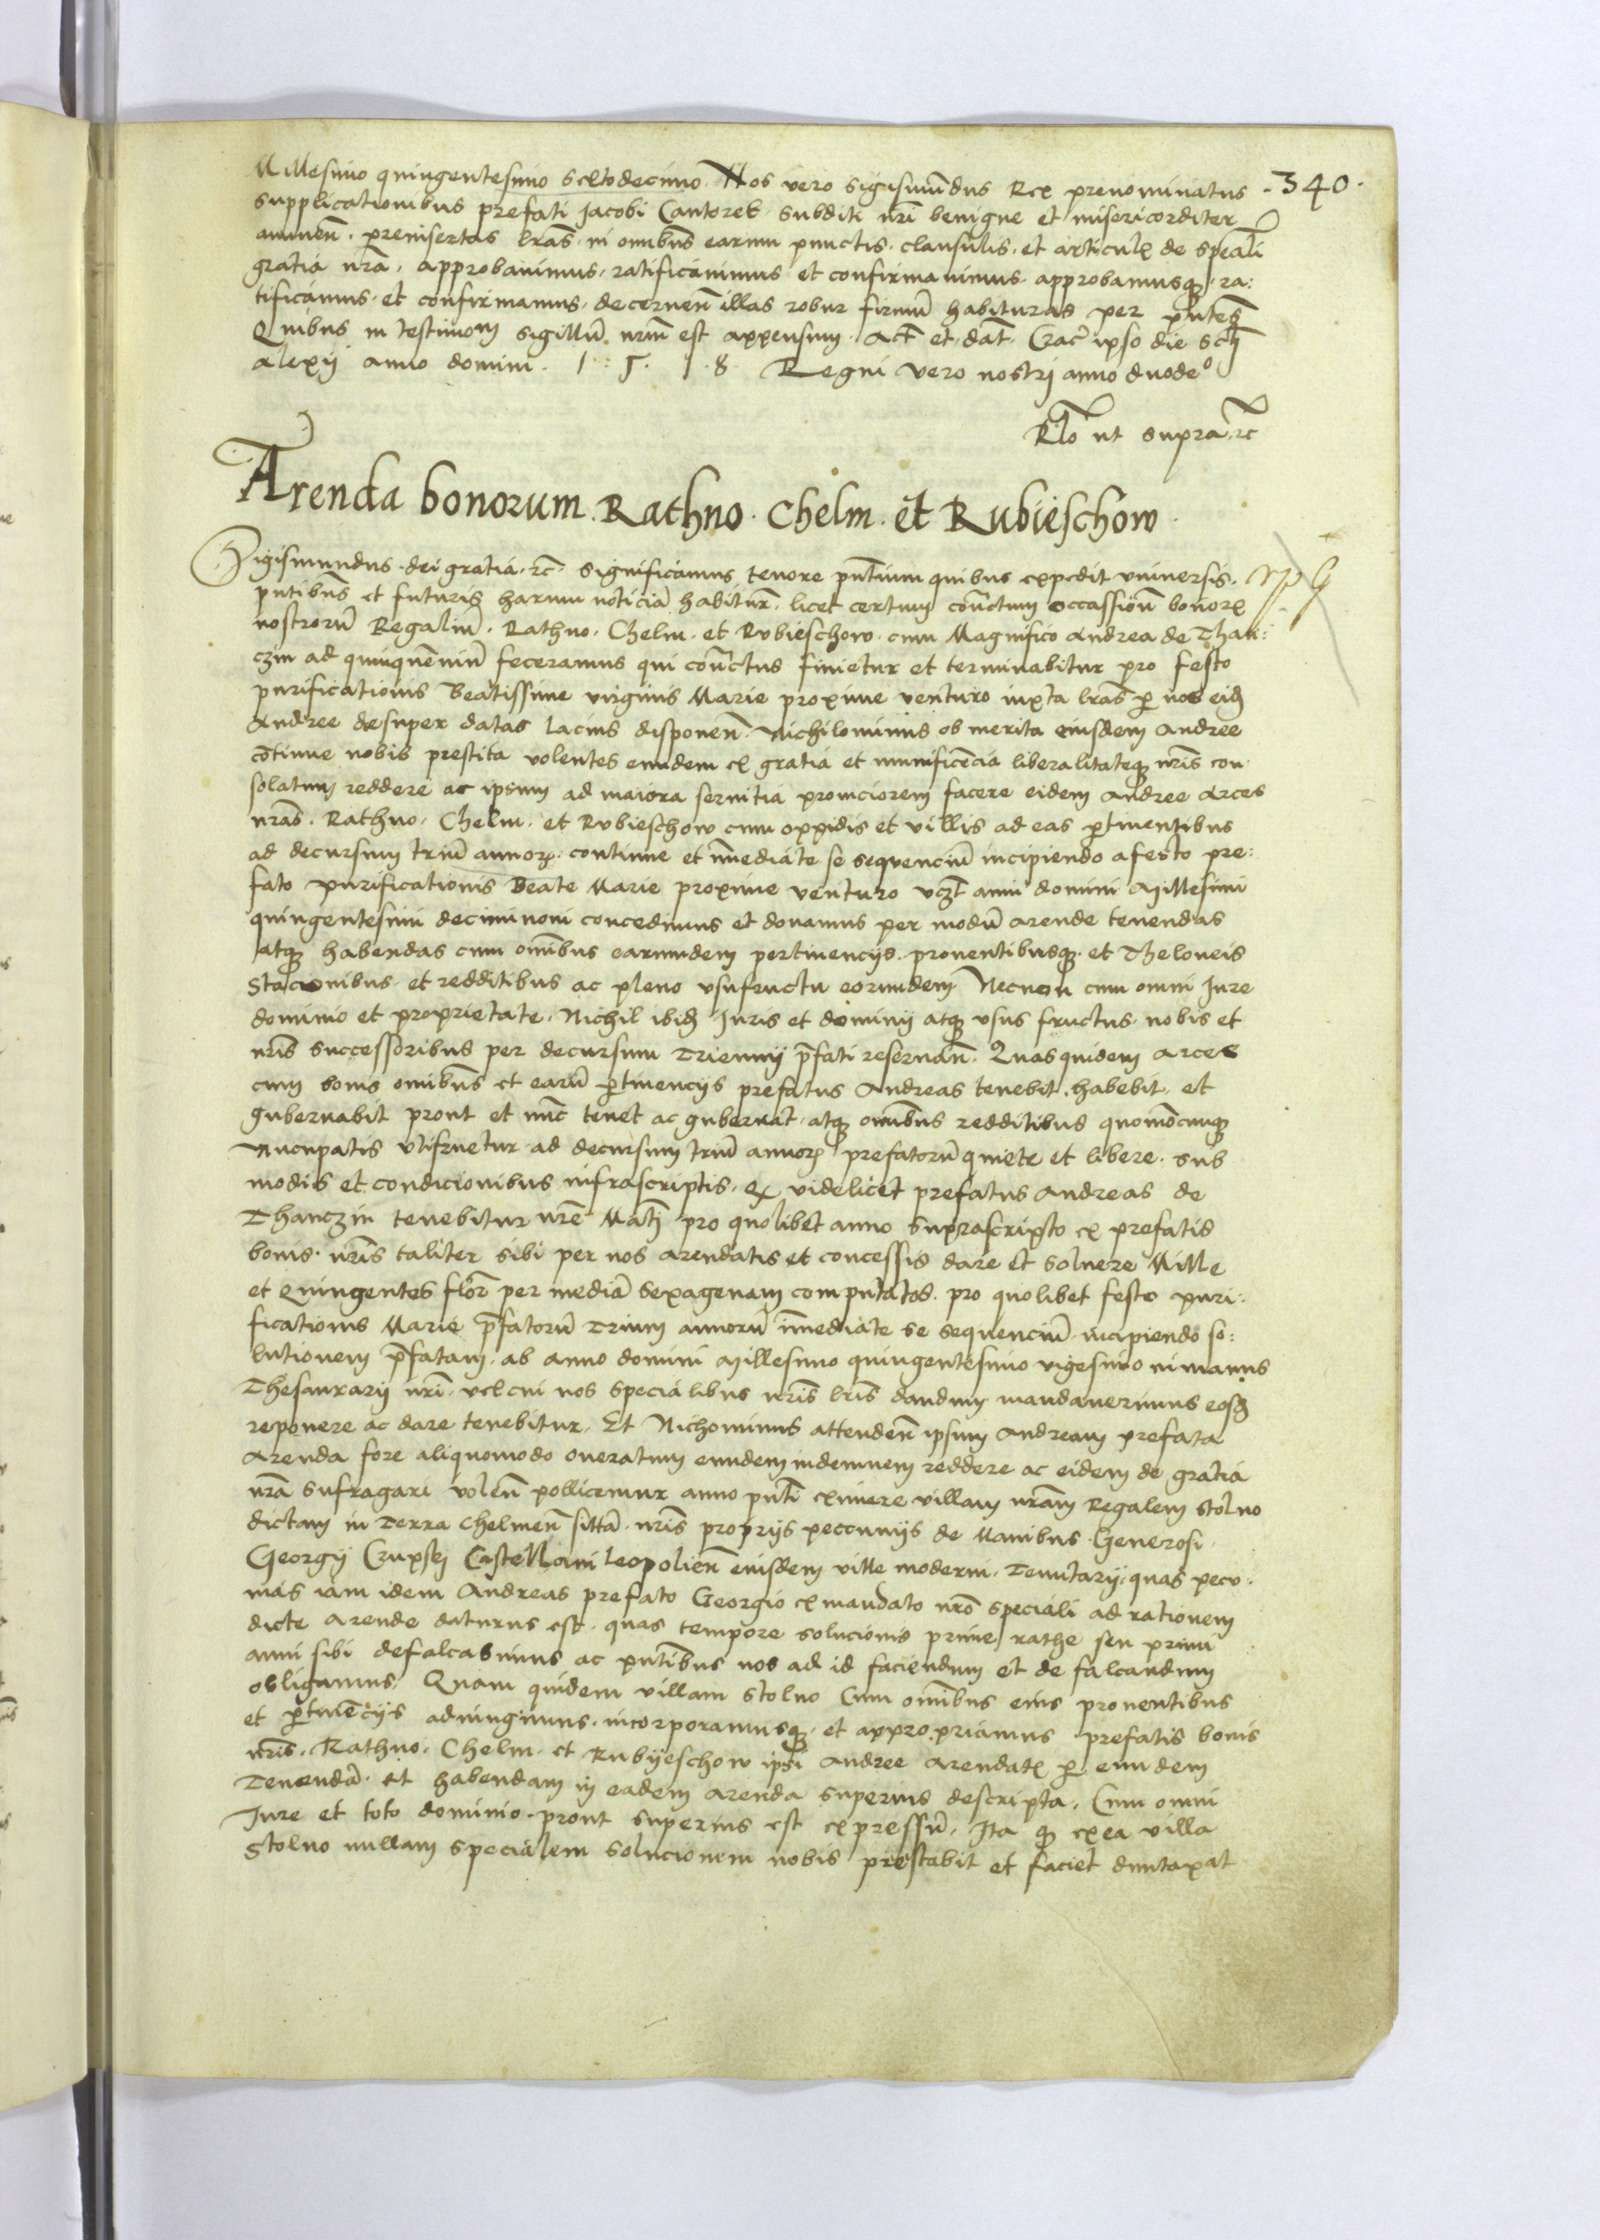 Millesimo quingentesimo sextodecimo. Nos vero Sigismundus Rex prenominatus
.340.
supplicationibus prefati Jacobi Cantoreb subditi nr̃i benigne et misericorditer
annuen̄. preinsertas lr̃as in omnibus earum punctis, clausulis, et articulꝭ de speāli
gratia nr̃a, approbavimus, ratificavimus et confirmavimus approbamusqꝫ, ra:
tificamus, et confirmamus, decernen̄ illas robur firmū habituras per pn̄tes
Quibus in testimoniū sigillū nr̃um est appensum. Act̄ et dat̄ Crac̄ ipso die sc̄ti
Alexii anno domini. 1.5.1.8. Regni vero nostri anno duode°
Rl̄o ut supra ꝛc
Arenda bonorum. Rathno. Chelm. et Rubieschow.
Sigismundus dei gratia ꝛc. significamus tenore pn̄tium quibus expedit universis.
pn̄tibus et futuris harum noticiā habitur̄. licet certum con̄ctum occassion̄ bonorꝭ
nostrorū Regaliū. Rathno. Chelm. et Rubieschow. cum Magnifico Andrea de Than:
czin ad quinquenniū feceramus qui con̄ctus finietur et terminabitur pro festo
purificationis Beatissime virginis Marie proxime venturo iuxta lr̃as ꝑ nos eidꝫ
Andree desuper datas lacius disponen̄. Nichilominus ob merita eiusdem Andree
cōtinue nobis prestita volentes eundem ex gratia et munificēcia liberalitateqꝫ nr̃is con
solatum reddere ac ipsum ad maiora servitia promciorem facere eidem Andree Arces
nr̃as. Rathno. Chelm. et Rubieschow cum oppidis et villis ad eas ꝑtinentibus
ad decursum triū annorꝭ. continue et īmediate se sequenciū incipiendo a festo pre:
fato purificationis Beate Marie proxime venturo vczt̄ anni domini Millesimi
quingentesimi deciminoni concedimus et donamus per modū arende tenendas
atqꝫ habendas cum omnibus earundem pertinenciis. proventibusqꝫ. et Theloneis
Stacionibus. et redditibus ac pleno usufructu eorundem Necnon cum omni Jure
dominio et proprietate. Nichil ibidꝫ Juris et dominii atqꝫ usus fructus. nobis et
nr̃is successoribus per decursum Triennii p̄fati reservan̄. Quas quidem Arces
cum bonis omnibus et earū ꝑtinenciis prefatus Andreas tenebit. habebit. et
gubernabit prout et nūc tenet ac gubernat. atqꝫ omnibus redditibus quomōcunqꝫ
Nuncupatis utifruetur ad decursum triū annorꝭ prefatorū quiete et libere. sub
modis et condicionibus infrascriptis. ꝙ videlicet prefatus Andreas de
Thanczin tenebitur nr̃e Māti pro quolibet anno suprascripto ex prefatis
bonis. nr̃is taliter sibi per nos arendatis et concessis dare et solvere Mille
et Quingentos flor̄ per mediā sexagenam computatos. pro quolibet festo puri:
ficationis Marie p̄fatorū Trium annorū īmediate se sequenciū. incipiendo so:
lutionem p̄fatam. ab anno domini Millesimo quingentesimo vigesimo in manus
Thesaurarii nr̃i. vel cui nos specialibus nr̃is lr̃is dandum mandaverimus eosdꝫ
reponere ac dare tenebitur. Et Nichominus attenden̄ ipsum Andream prefata
Arenda fore aliquomodo oneratum eundem indemnem reddere ac eidem de gratia
nr̃a sufragari volen̄ pollicemur anno pn̄ti eximere villam nr̃am Regalem Stolno
dictam in Terra Chelmen̄ sittā. nr̃is propriis peccuniis de Manibus. Generosi.
Georgii Crupski Castellani leopolien̄ eiusdem ville moderni. Tenutarii. quas pecu.
nias iam idem Andreas prefato Georgio ex mandato nr̃o speciali ad rationem
dicte Arende daturus est. quas tempore solucionis prime rathe seu primi
anni sibi defalcabimus ac pn̄tibus nos ad id faciendum et defalcandum
obligamus. Quam quidem villam Stolno Cum omnibus eius proventibus
et ꝑtinēciis adiungimus. incorporamusqꝫ. et appropriamus prefatis bonis
nr̃is. Rathno. Chelm. et Rubyeschow ipsi Andree Arendatꝭ ꝑ eundem
Tenendā. et habendam in eadem arenda superius descripta. Cum omni
Jure et toto dominio. prout superius est expressū. Ita ꝙ ex ea villa
Stolno nullam specialem solucionem nobis prestabit et faciet duntaxat